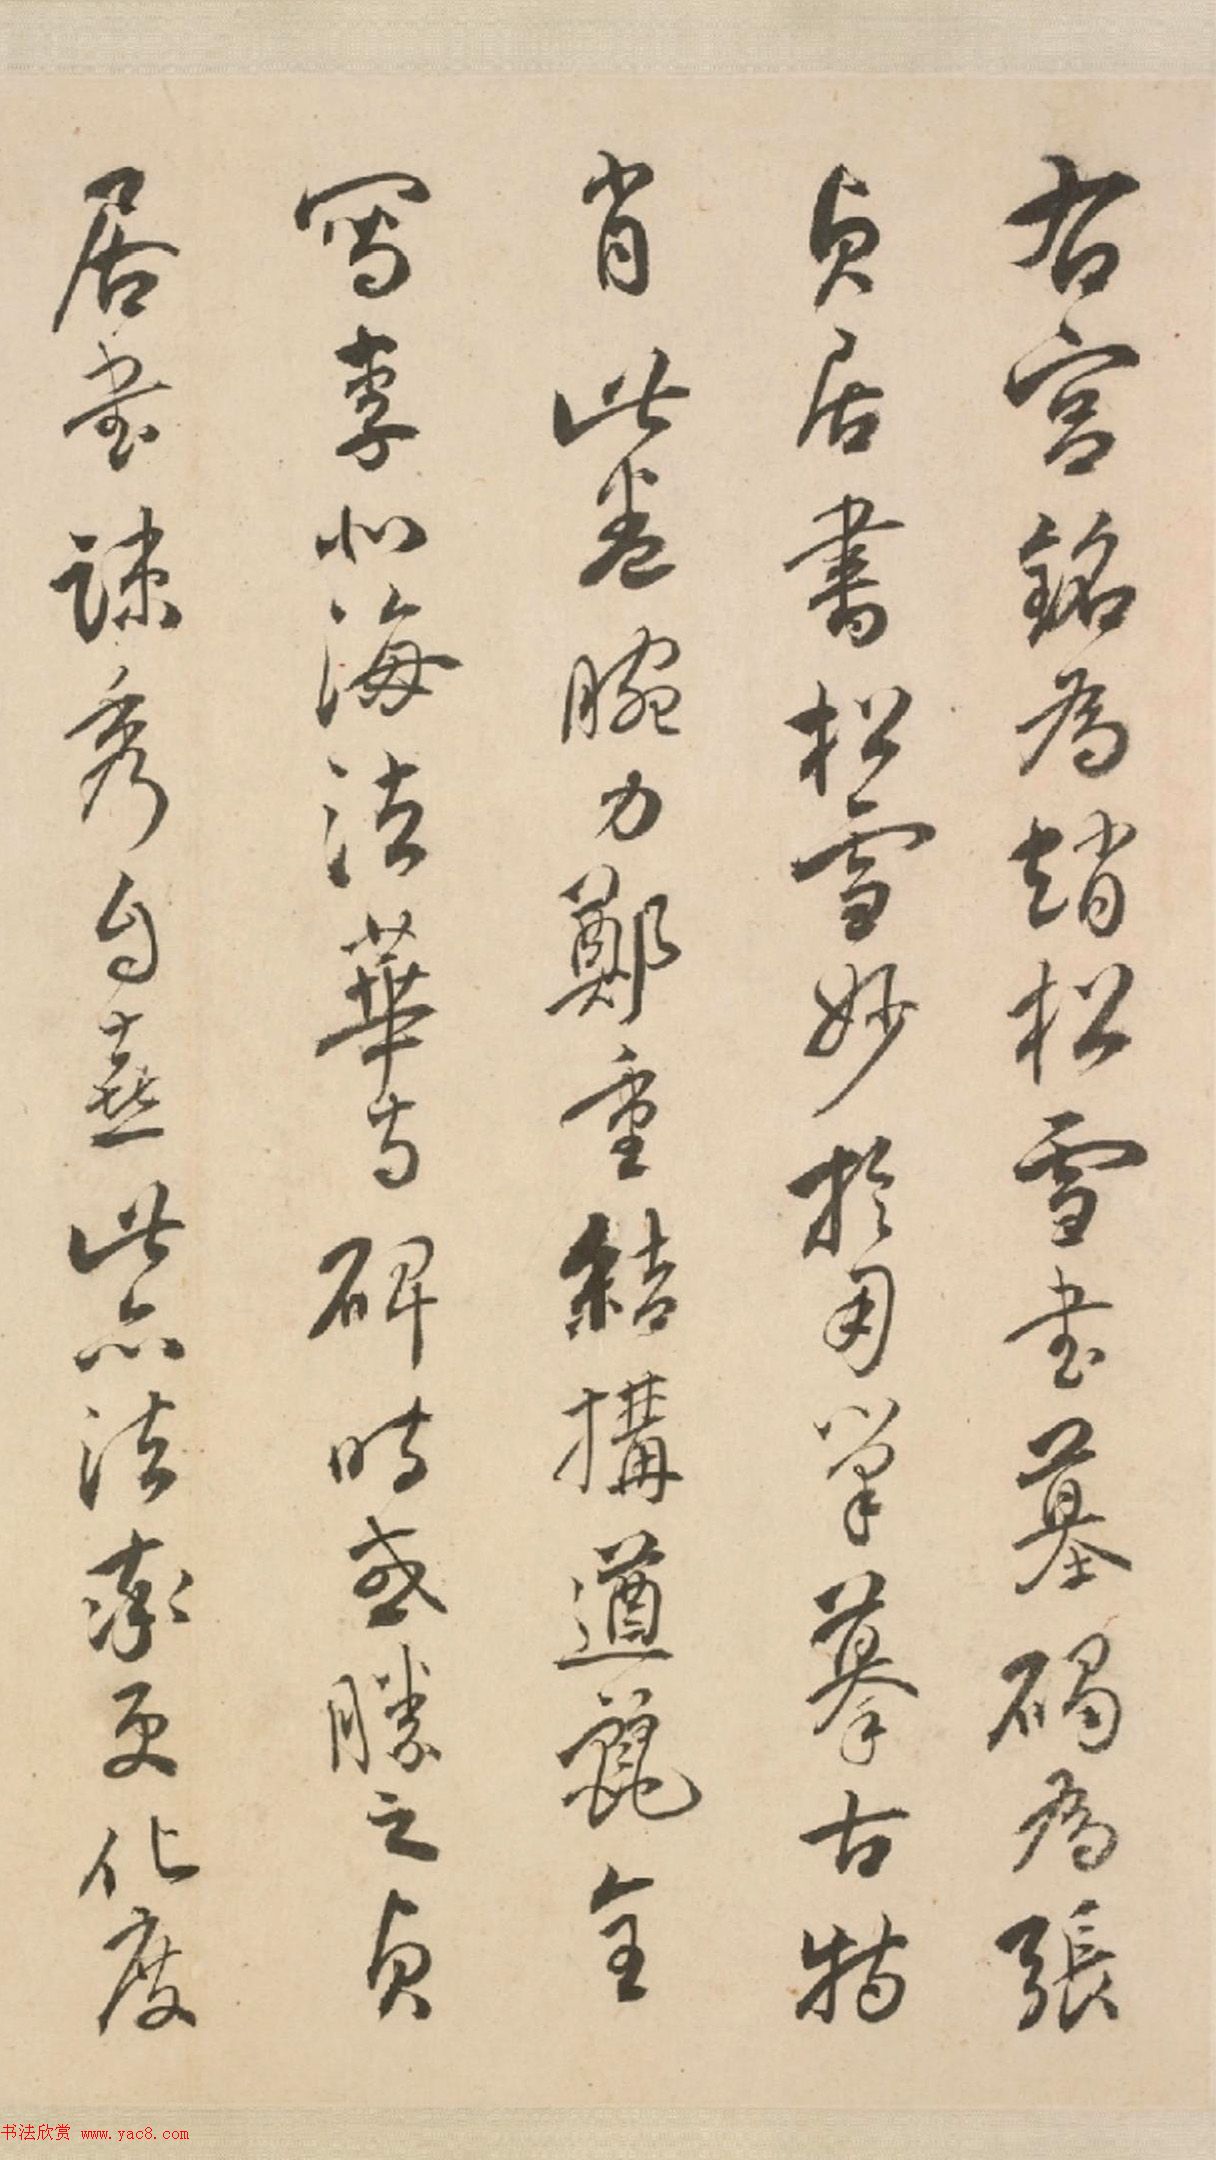 右宫銘為趙松雪書墓碣為張
貞居書松雪妙於用筆摹古特
肖此卷腕力鄭重結構遒麗全
寫李北海法華寺碑時或勝之貞
居書疎秀自喜此亦法率更化度
书法欣赏 www.yac8.com